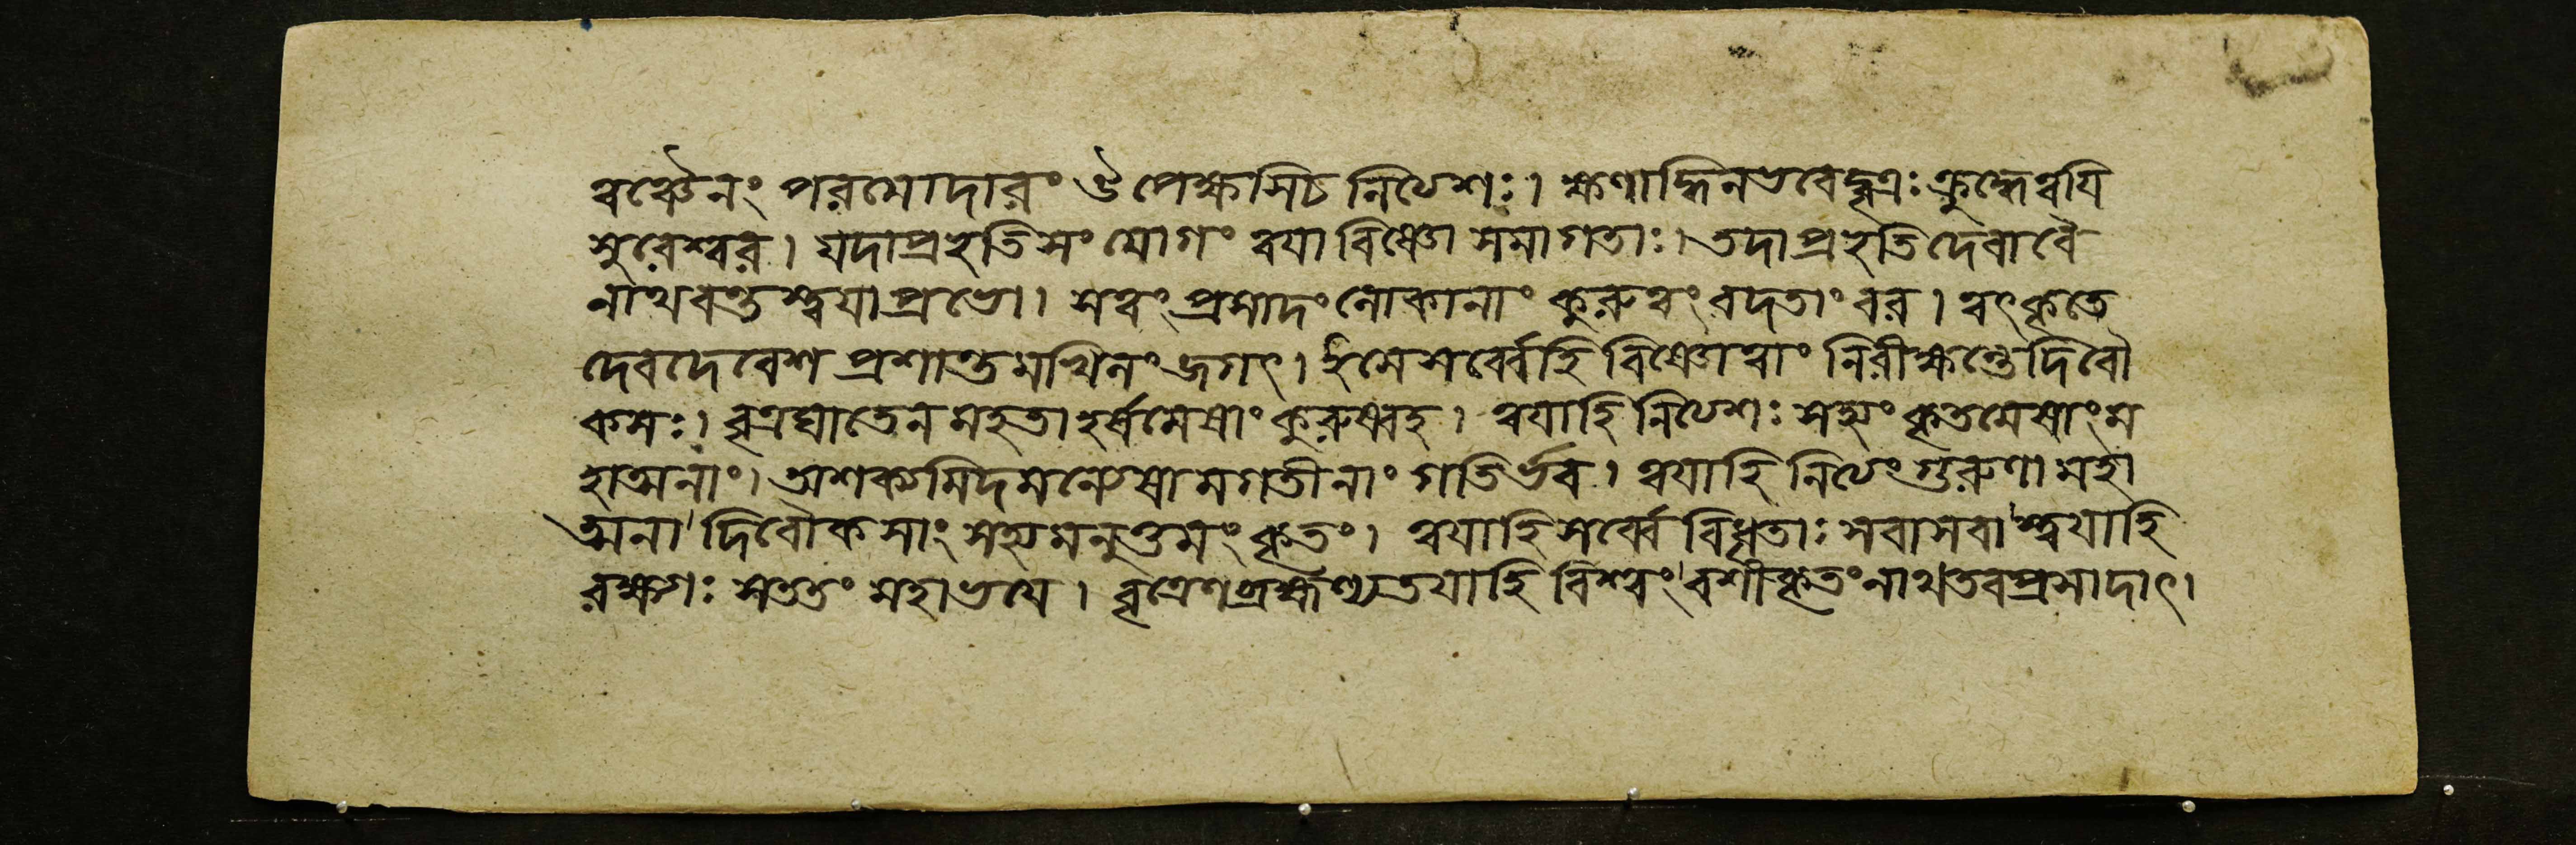 ত্বঞ্চৈনং পরমোদারং উপেক্ষসিচ নিত্যশঃ। ক্ষণাদ্ধিনভবেদ্বৃত্রঃ ক্রুদ্ধেত্বয়ি
সুরেশ্বর। যদাপ্রভৃতিসং যোগং ত্বয়া বিষ্ণো সমাগতাঃ। তদাপ্রভৃতিদেবাবৈ
নাথবন্তস্ত্বয়া প্রভো। সত্বং প্রসাদং লোকানাং কুরুত্বং বদতাং বর। ত্বৎকৃতে
দেবদেবেশ প্রশান্তমখিলং জগৎ। ইমে সর্ব্বেহি বিষ্ণোত্বাং নিরীক্ষন্তে দিবৌ
কসঃ। বৃত্রঘাতেন মহতা হর্ষমেষাং কুরুষ্বহ। ত্বয়াহি নিত্যশঃ সহ্যং কৃতমেষাংম
হাত্মনাং। অশক্যমিদমন্যেষামগতীনাং গতির্ভব। ত্বয়াহি নিত্যং গুরুণা মহা
ত্মনা দিবৌকসাং সহ্যমনুত্তমং কৃতং। ত্বয়াহি সর্ব্বে বিধৃতাঃ সবাসবাস্ত্বয়াহি
রক্ষগঃ সততং মহাভয়ে। বৃত্রেণ তথাহি বিশ্বং বশীকৃতং নাথ তবপ্রসাদাৎ।